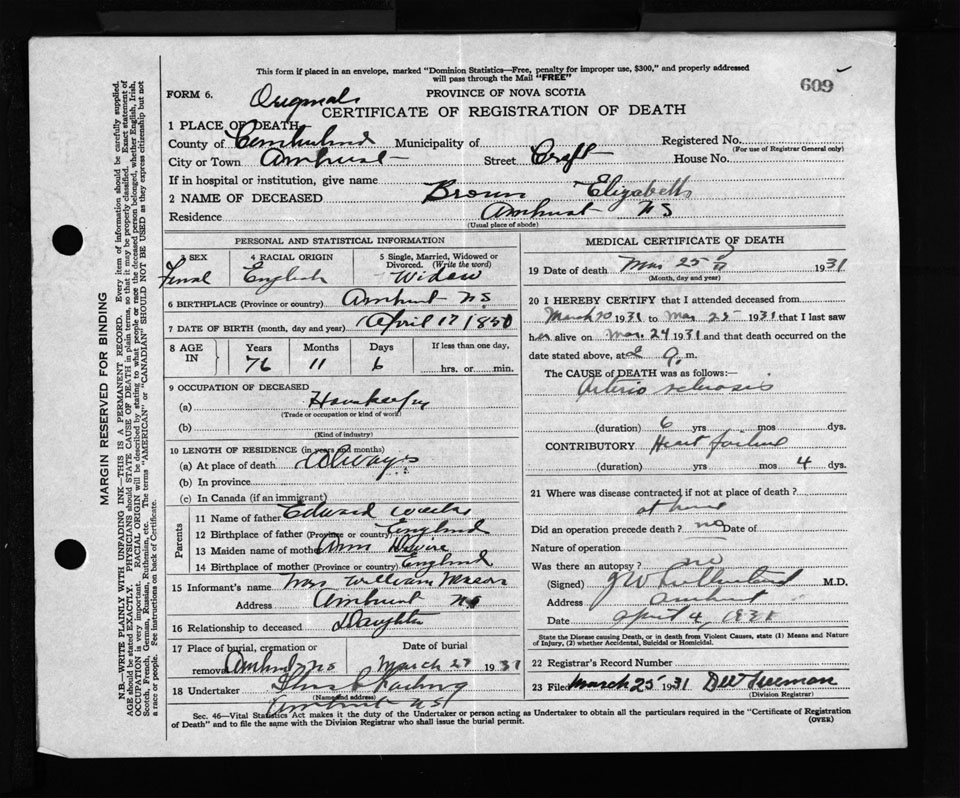 This form if placed in an envelope, marked "Dominion Statistics—Free, penalty for improper use, $300," and properly addressed
will pass through the Mail "FREE"
609
FORM 6.
PROVINCE OF NOVA SCOTIA
CERTIFICATE OF REGISTRATION OF DEATH
1 PLACE OF DEATH
County of Cumberland Municipality of Registered No.
(For use of Registrar General only)
City or Town Amherst Street Croft House No.
If in hospital or institution, give name
2 NAME OF DECEASED Brown Elizabeth
Residence Amherst N S
(Usual place of abode)
PERSONAL AND STATISTICAL INFORMATION
3 SEX 4 RACIAL ORIGIN 5 Single, Married, Widowed or
Divorced. (Write the word)
Femal English Widow
6 BIRTHPLACE (Province or country) Amherst N.S.
7 DATE OF BIRTH (month, day and year) April 17
8 AGE IN Years Months Days If less than one day,
76 11 6 hrs. or min.
9 OCCUPATION OF DECEASED
(a) Housekeeper
(Trade or occupation or kind of work)
(b)
(Kind of industry)
10 LENGTH OF RESIDENCE (in years and months)
(a) At place of death Always
(b) In province
(c) In Canada (if an immigrant)
Parents
11 Name of father Edward
12 Birthplace of father (Province or country) England
13 Maiden name of mother Ann
14 Birthplace of mother (Province or country) England
15 Informant's name Mrs William
Address Amherst NS
16 Relationship to deceased Daughter
17 Place of burial, cremation or Date of burial
removal Amherst NS March 27 1931
18 Undertaker
(Name and address)
Amherst NS
MEDICAL CERTIFICATE OF DEATH
19 Date of death Mar 25 1931
(Month, day and year)
20 I HEREBY CERTIFY that I attended deceased from
March 20 1931 to Mar 25 1931 that I last saw
her alive on Mar. 24 1931 and that death occurred on the
date stated above, at m.
The CAUSE of DEATH was as follows:—
Arterio sclerosis
(duration) 6 yrs mos dys.
CONTRIBUTORY Heart failure
(duration) yrs mos 4 dys.
21 Where was disease contracted if not at place of death?
at home
Did an operation precede death? no Date of
Nature of operation
Was there an autopsy? no
(Signed) M.D.
Address Amherst
Date April 4, 1931
State the Disease causing Death, or in death from Violent Causes, state (1) Means and Nature
of Injury, (2) whether Accidental, Suicidal or Homicidal.
22 Registrar's Record Number
23 Filed March 25 1931
(Division Registrar)
Sec. 46—Vital Statistics Act makes it the duty of the Undertaker or person acting as Undertaker to obtain all the particulars required in the "Certificate of Registration
of Death" and to file the same with the Division Registrar who shall issue the burial permit.
(OVER)
MARGIN RESERVED FOR BINDING
N.B.—WRITE PLAINLY WITH UNFADING INK—THIS IS A PERMANENT RECORD. Every item of information should be carefully supplied.
AGE should be stated EXACTLY. PHYSICIANS should STATE CAUSE OF DEATH in plain terms, so that it may be properly classified. Exact statement of
OCCUPATION is very important. RACIAL ORIGIN will be described by stating to what people or race the deceased person belonged, whether English, Irish,
Scotch, French, German, Russian, Ruthenian, etc. The terms "AMERICAN" or "CANADIAN" SHOULD NOT BE USED as they express citizenship but not
a race or people. See instructions on back of Certificate.